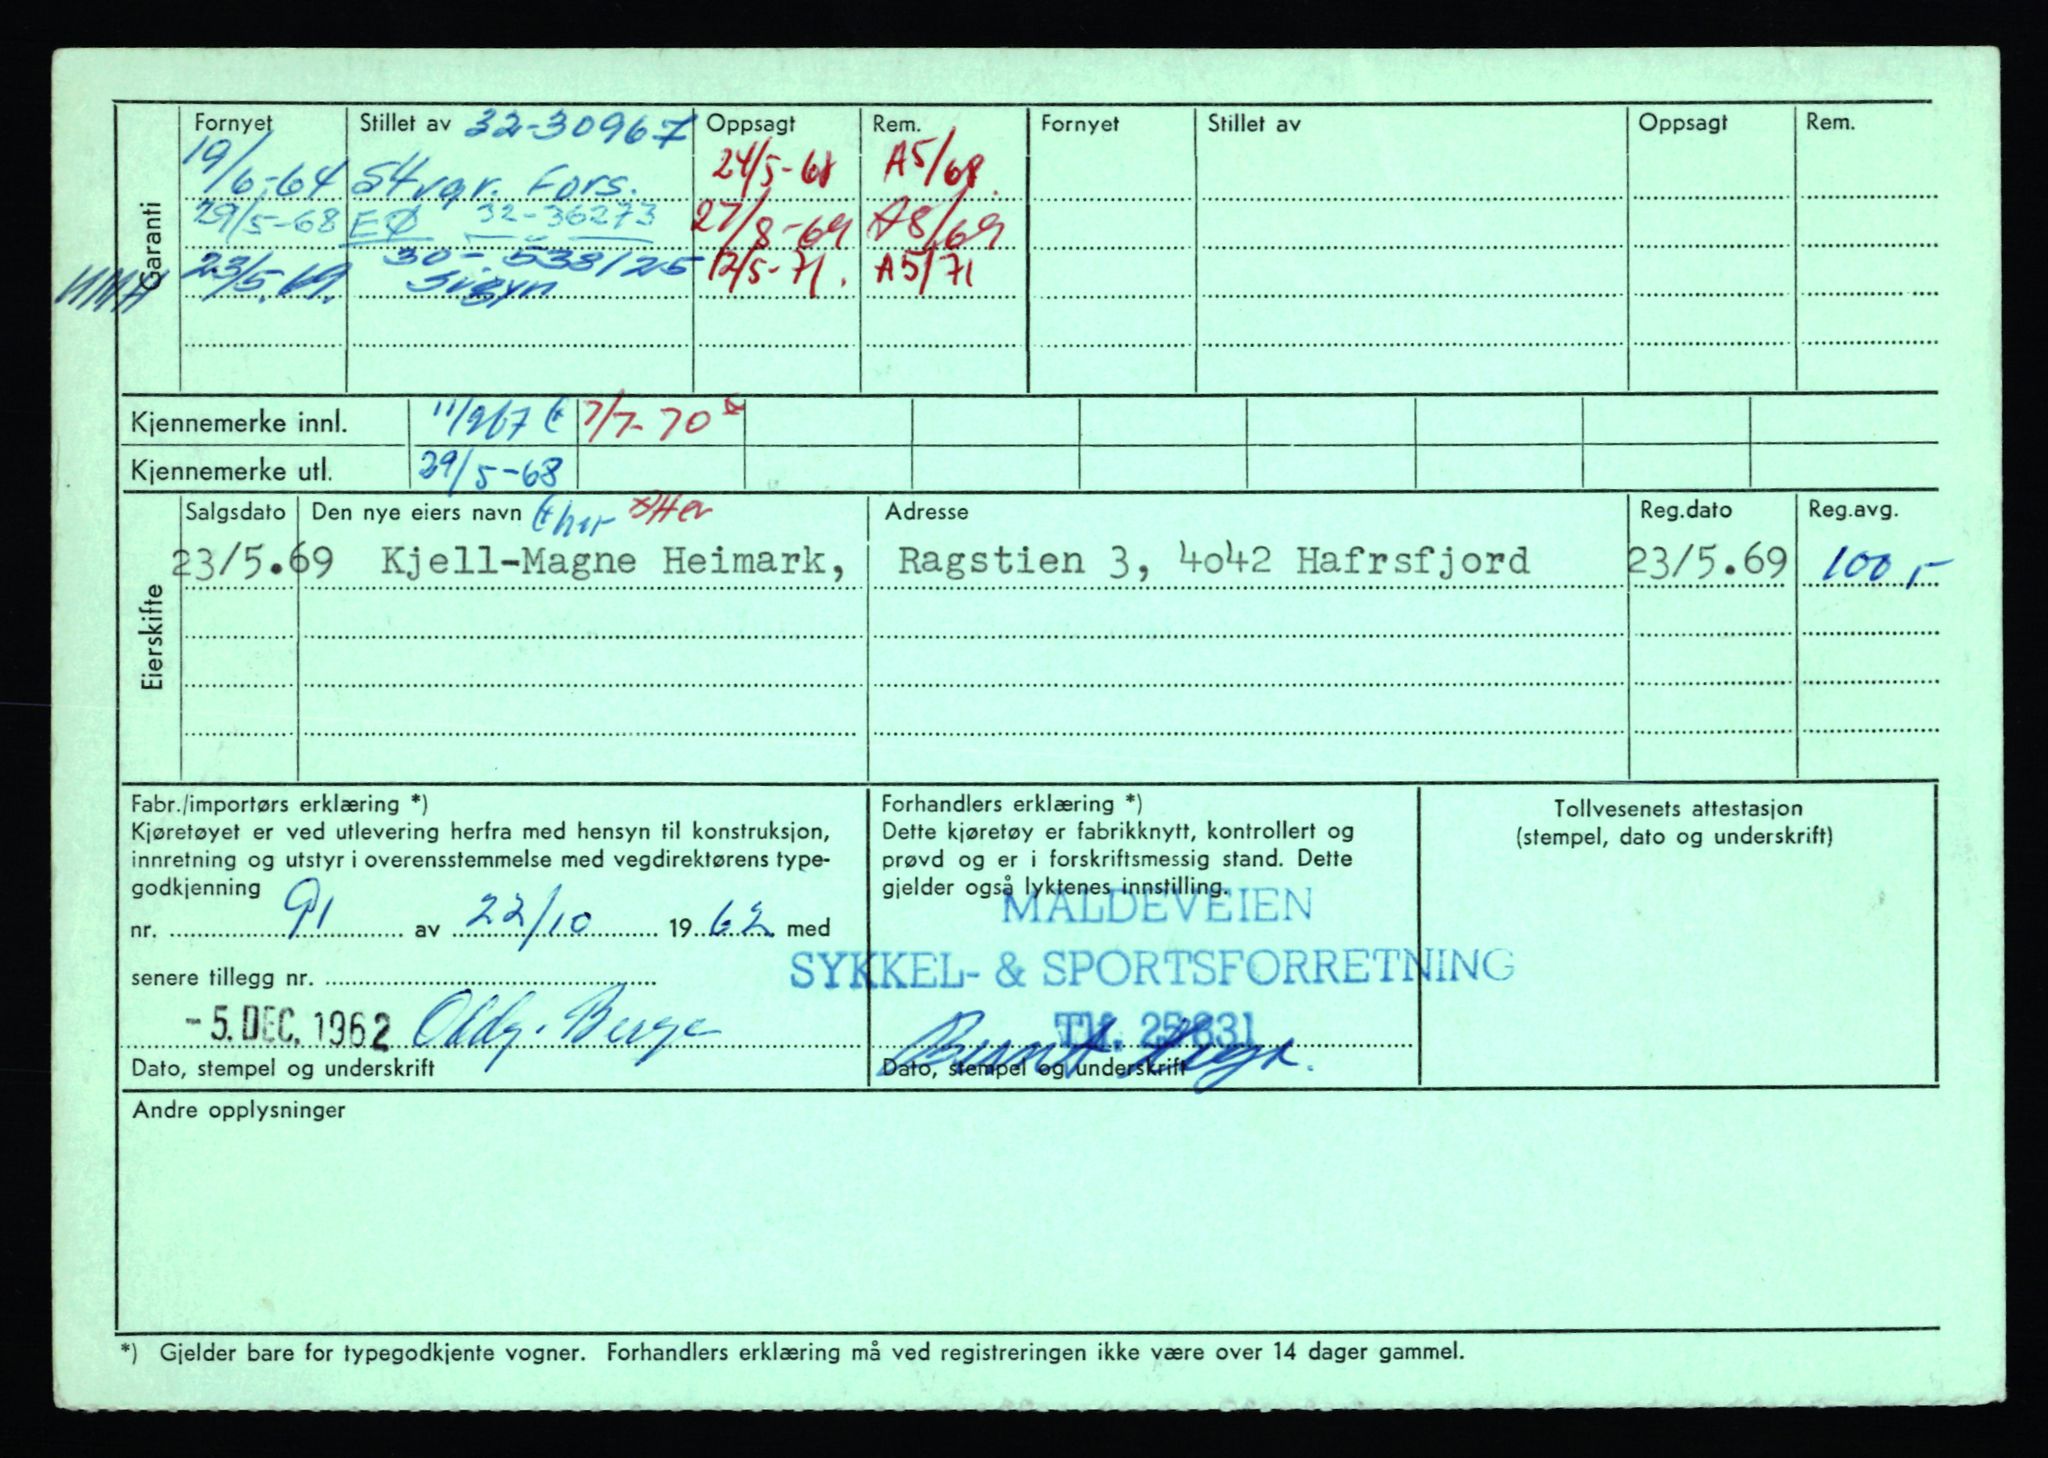 Garanti
Fornyet Stillet av 32-30967 Oppsagt Rem. Fornyet Stillet av Oppsagt Rem.
19/6-64 Fors. 24/5-68 A5/68.
29/5-68 EØ 32-36273 27/8-69 A8/69
23/5.69. 30-538125 12/5-71. A5/71
Sigyn
Kjennemerke innl. 11/967 7/7-70
Kjennemerke utl. 29/5-68
Eierskifte
Salgsdato Den nye eiers navn Adresse Reg.dato Reg.avg.
23/5.69 Kjell-Magne Heimark, Ragstien 3, 4042 Hafrsfjord 23/5.69 100,-
Fabr./importørs erklæring *)
Kjøretøyet er ved utlevering herfra med hensyn til konstruksjon,
innretning og utstyr i overensstemmelse med vegdirektørens type-
godkjenning
nr. 91 av 22/10 1962 med
senere tillegg nr.
-5. DEC. 1962 Oddg. Berge
Dato, stempel og underskrift
Forhandlers erklæring *)
Dette kjøretøy er fabrikknytt, kontrollert og
prøvd og er i forskriftsmessig stand. Dette
gjelder også lyktenes innstilling.
MADLEVEIEN
SYKKEL- & SPORTSFORRETNING
Tlf. 25831
Dato, stempel og underskrift
Tollvesenets attestasjon
(stempel, dato og underskrift)
Andre opplysninger
*) Gjelder bare for typegodkjente vogner. Forhandlers erklæring må ved registreringen ikke være over 14 dager gammel.